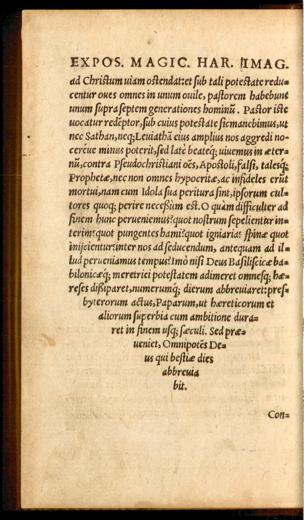 EXPOS. MAGIC. HAR. IMAG.
ad Christum uiam ostendat: et sub tali potestate redu-
centur oues omnes in unum ouile, pastorem habebunt
unum supra septem generationes hominū. Pastor iste
uocatur redēptor, sub cuius potestate sic manebimus, ut
nec Sathan, neq; Leuiathā eius amplius nos aggredi no-
cereue minus poterit, sed latè beateq; uiuemus in æter-
nū, contra Pseudochristiani oēs, Apostoli, falsi, talesq;
Prophetæ, nec non omnes hypocritæ, ac infideles erūt
mortui, nam cum Idola sua peritura sint, ipsorum cul-
tores quoq; perire necessum est. O quàm difficulter ad
finem hunc perueniemus? quot nostrum sepelientur in-
terim? quot pungentes hami? quot igniariæ spinæ quot
inijcientur? inter nos ad seducendum, antequam ad il-
lud perueniamus tempus? Imò nisi Deus Basiliscicæ ba-
bilonicæq; meretrici potestatem adimeret omnesq; hæ-
reses dissiparet, numerumq; dierum abbreuiaret: pres-
byterorum actus, Paparum, ut hæreticorum et
aliorum superbia cum ambitione dura-
ret in finem usq; sæculi. Sed præ-
ueniet, Omnipotēs De-
us qui bestiæ dies
abbreuia
bit.
Con-